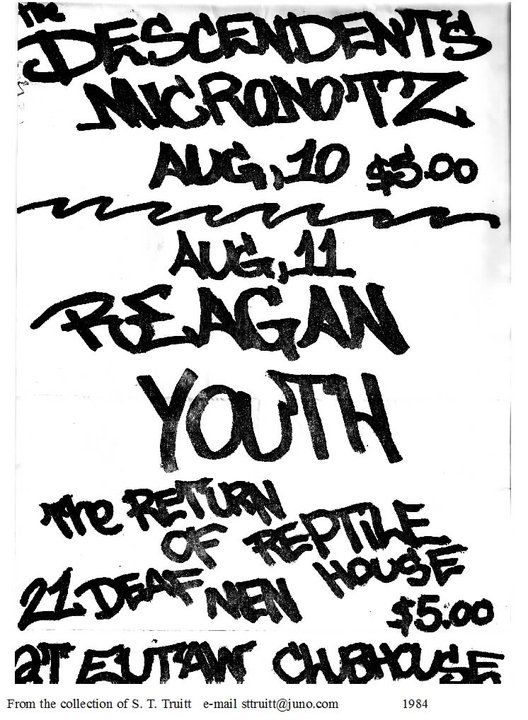 The
DESCENDENTS
MICRONOTZ
AUG, 10 $5.00
AUG, 11
REAGAN
YOUTH
The RETURN
OF REPTILE
HOUSE
21 DEAF MEN
$5.00
AT EUTAW CLUBHOUSE
From the collection of S. T. Truitt e-mail sttruitt@juno.com 1984